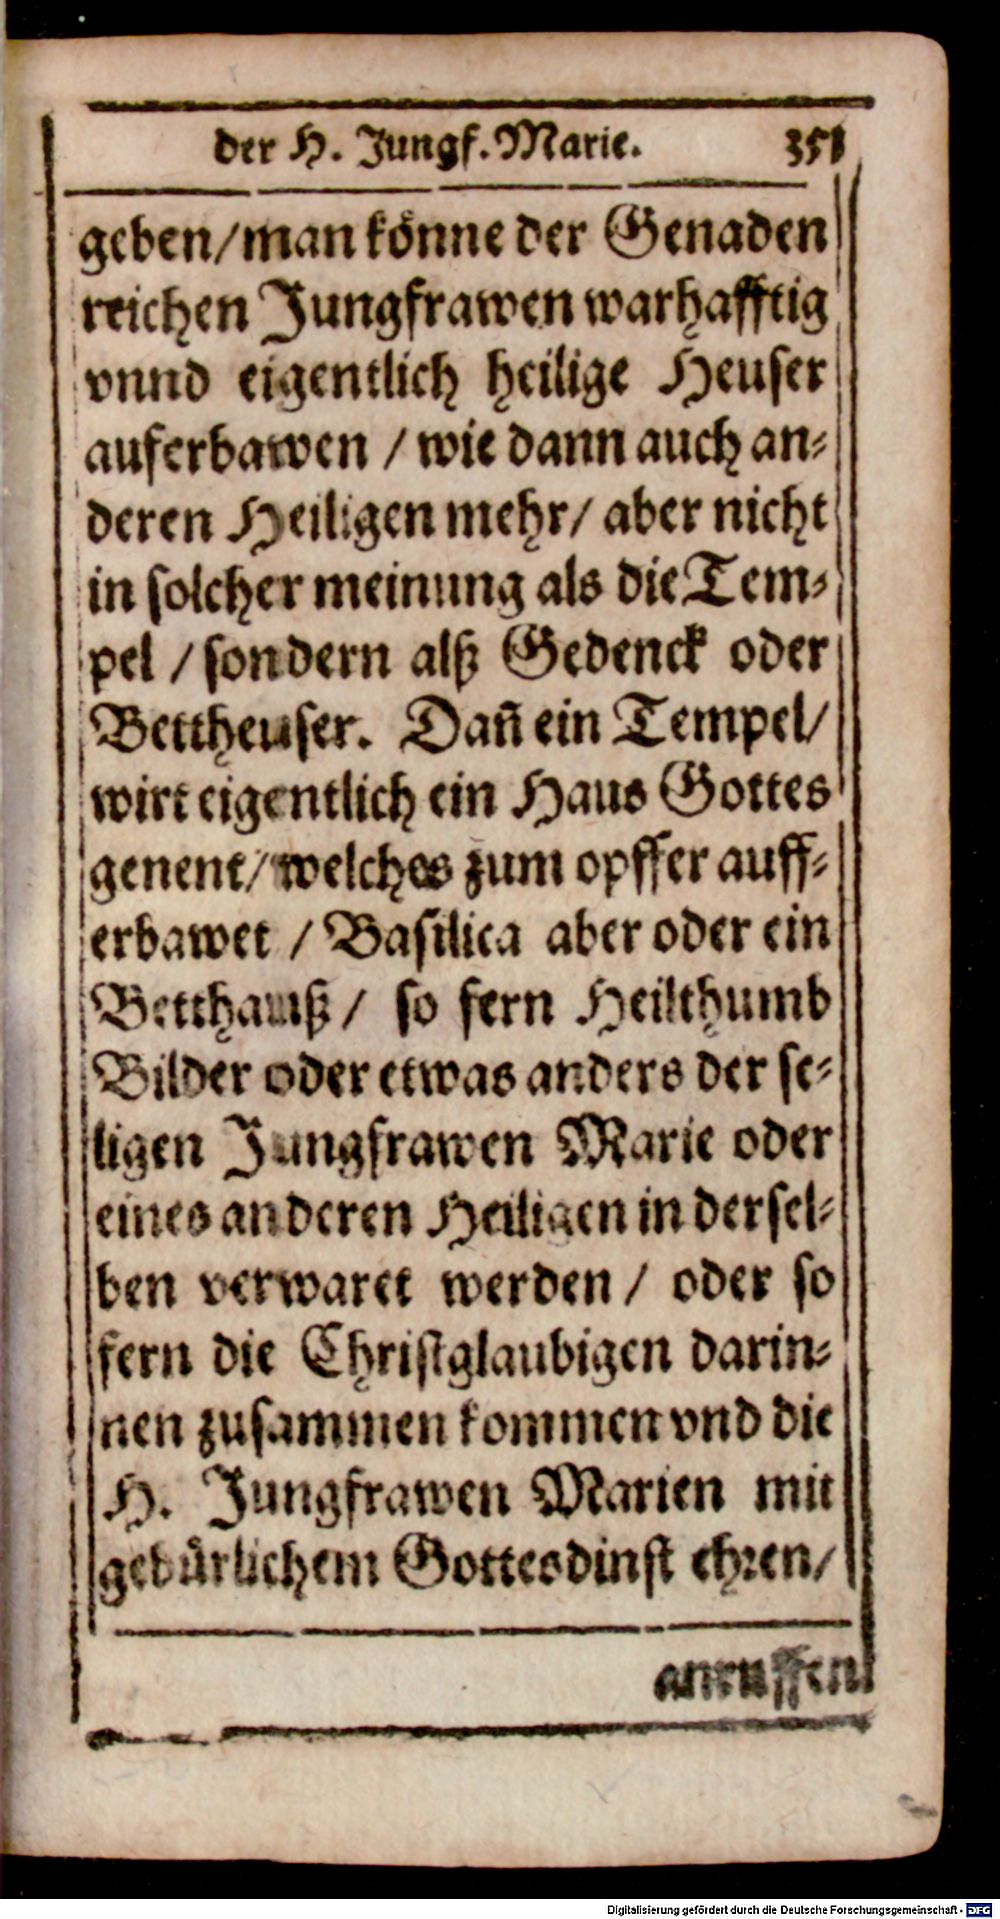 der H. Jungf. Marie. 351
geben/man könne der Genaden
reichen Jungfrawen warhafftig
vnnd eigentlich heilige Heuser
auferbawen / wie dann auch an⸗
deren Heiligen mehr/ aber nicht
in solcher meinung als die Tem⸗
pel / sondern alß Gedenck oder
Bettheuser. Dañ ein Tempel/
wirt eigentlich ein Haus Gottes
genent/welches zum opffer auff⸗
erbawet / Basilica aber oder ein
Betthauß / so fern Heilthumb
Bilder oder etwas anders der se⸗
ligen Jungfrawen Marie oder
eines anderen Heiligen in dersel⸗
ben verwaret werden / oder so
fern die Christglaubigen darin⸗
nen zusammen kommen vnd die
H. Jungfrawen Marien mit
gebürlichem Gottesdinst ehren/
anruffen
Digitalisierung gefördert durch die Deutsche Forschungsgemeinschaft - DFG